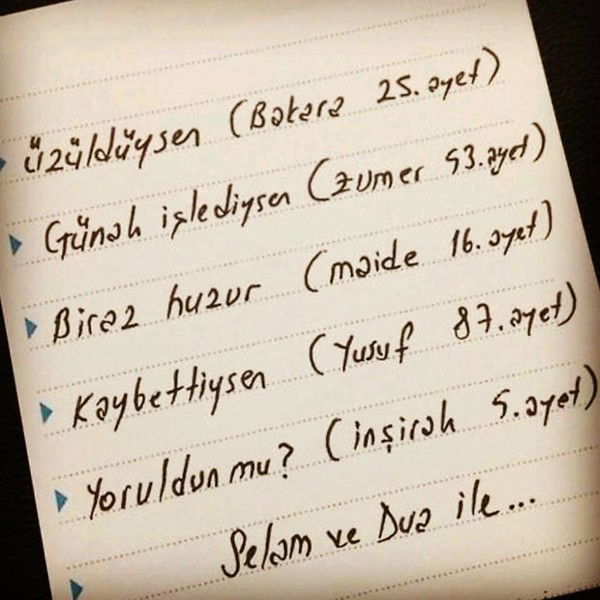 Üzüldüysen (Bakara 25. ayet)
Günah işlediysen (zumer 53. ayet)
Biraz huzur (maide 16. ayet)
Kaybettiysen (Yusuf 87. ayet)
Yoruldun mu? (inşirah 5. ayet)
Selam ve Dua ile...